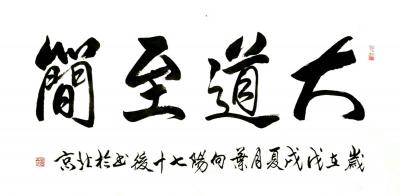 大道至簡
歲在戊戌夏月葉向陽七十後書於北京